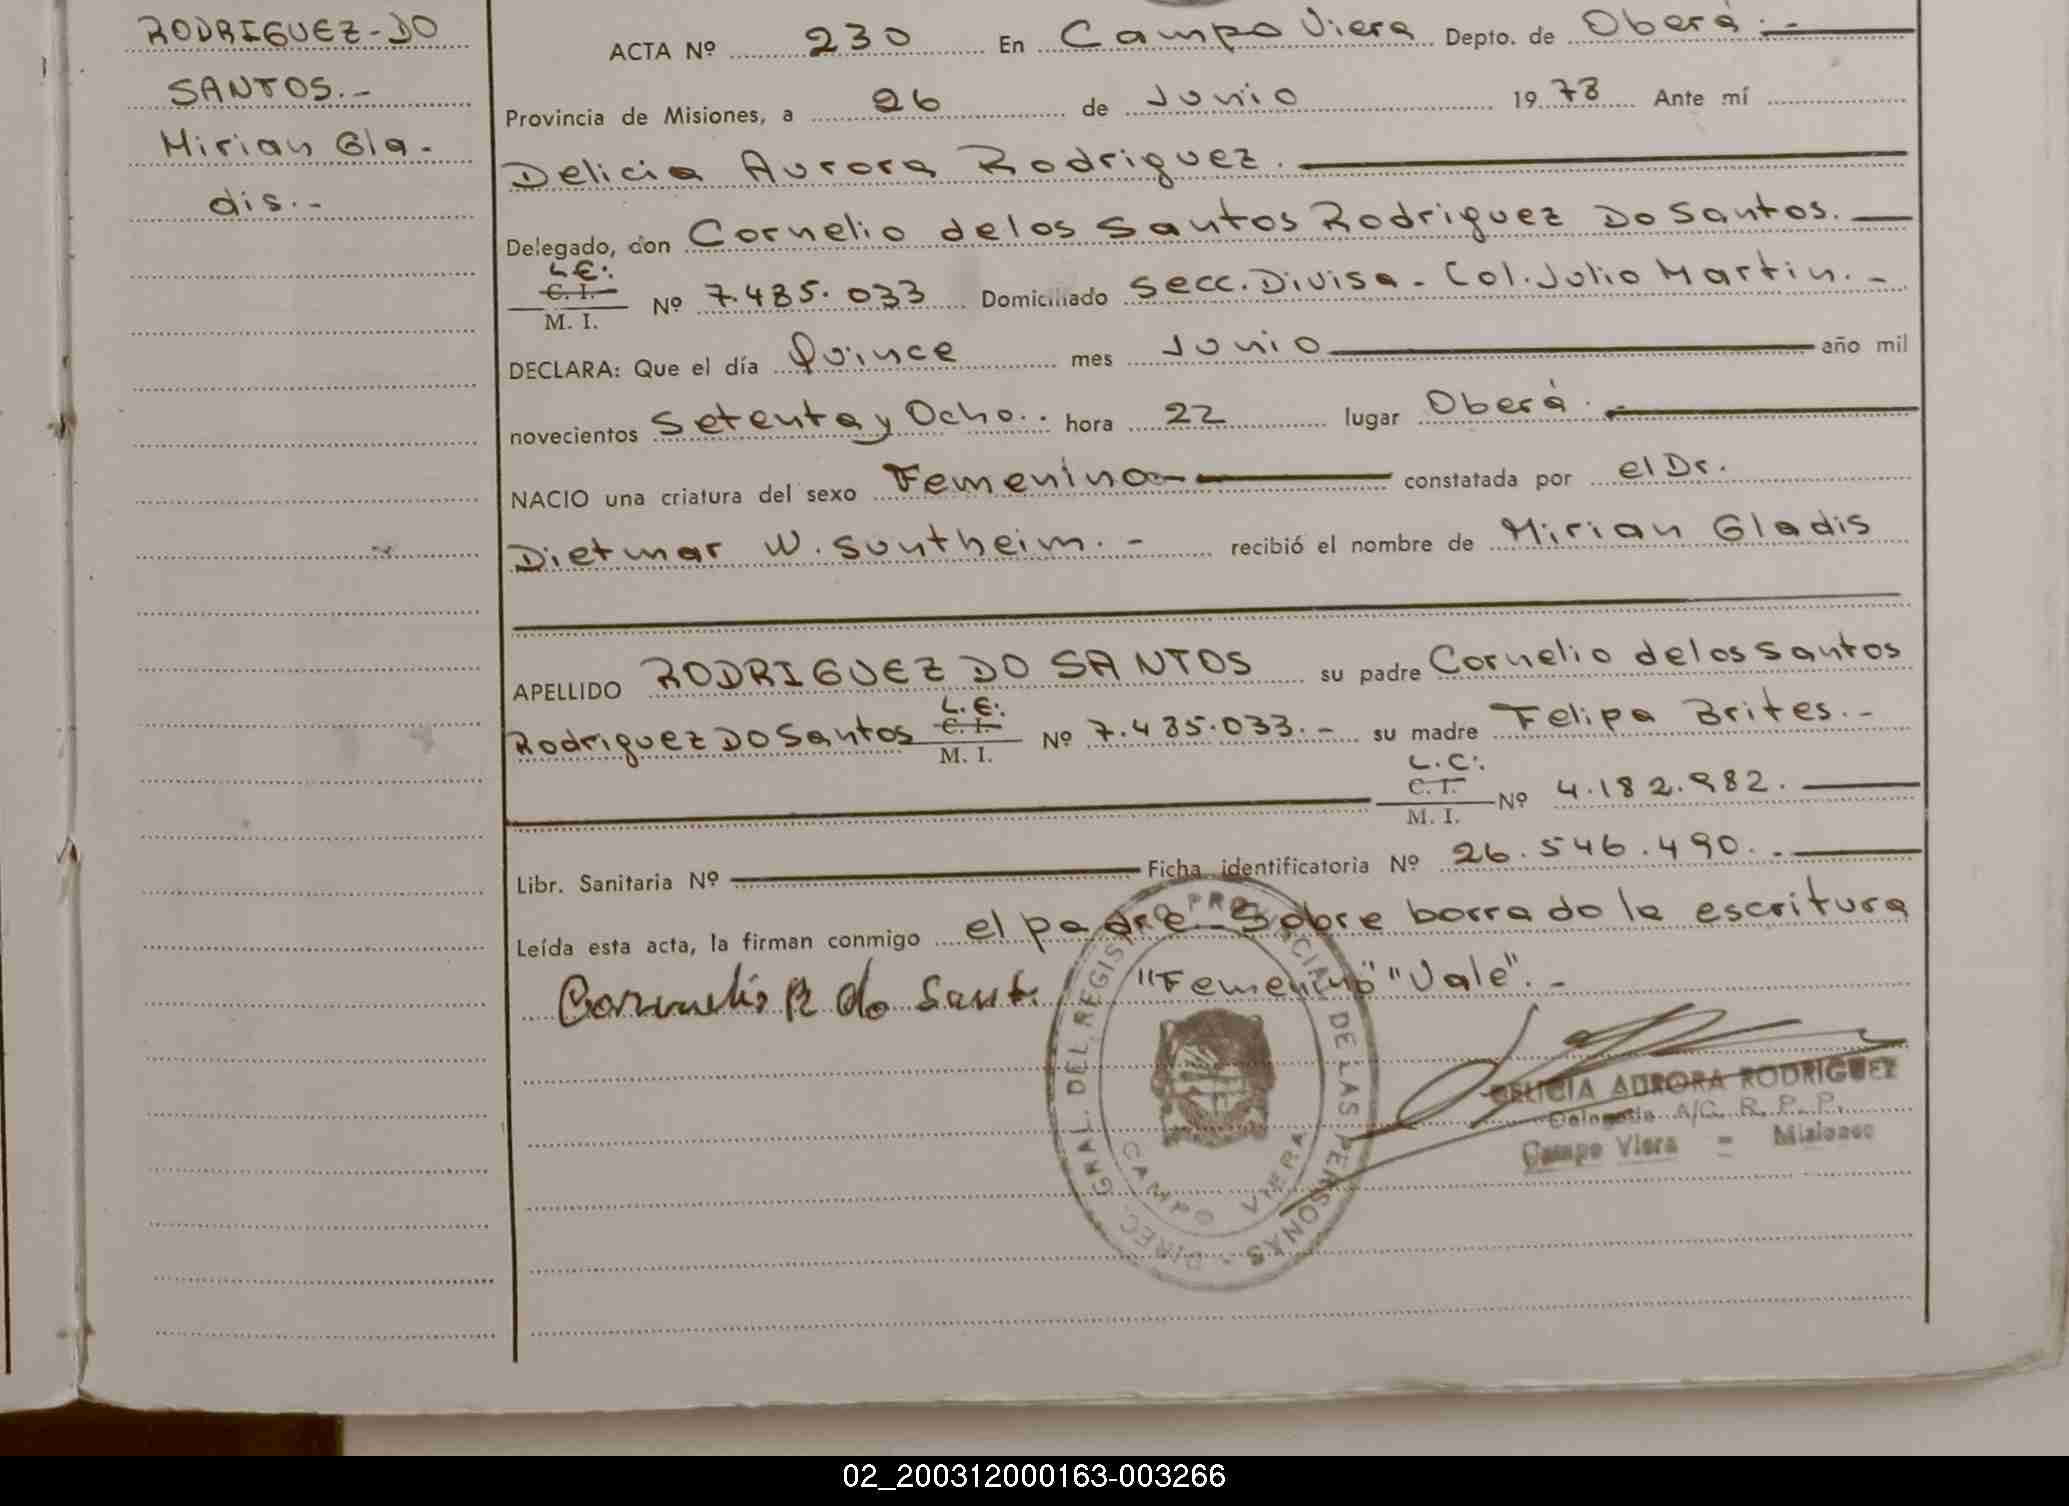 RODRIGUEZ-DO
SANTOS.-
Mirian Gla-
dis.-
ACTA Nº 230 En Campo Viera Depto. de Oberá.-
Provincia de Misiones, a 26 de Junio 1978 Ante mí
Delicia Aurora Rodriguez.
Delegado, don Cornelio delos Santos Rodriguez Do Santos.
L.E.:
C. I.
M. I. Nº 7.485.033 Domiciliado Secc. Divisa - Col. Julio Martin.-
DECLARA: Que el día Quince mes Junio año mil
novecientos Setenta y Ocho.. hora 22 lugar Oberá.-
NACIO una criatura del sexo Femenino constatada por el Dr.
Dietmar W. Suntheim.- recibió el nombre de Mirian Gladis
APELLIDO RODRIGUEZ DO SANTOS su padre Cornelio delos Santos
Rodriguez DO Santos
L.E:
C. I.
M. I. Nº 7.485.033.- su madre Felipa Brites.-
L.C:
C. I.
M. I. Nº 4.182.982.
Libr. Sanitaria Nº Ficha identificatoria Nº 26.546.490.-
Leída esta acta, la firman conmigo el padre - Sobre borrado la escritura
"Femenino" "Vale".-
Cornelio R do Sant.
DIREC. GRAL. DEL REGISTRO PROVINCIAL DE LAS PERSONAS
CAMPO VIERA
DELICIA AURORA RODRIGUEZ
Delegada A/C. R. P. P.
Campo Viera = Misiones
02_200312000163-003266